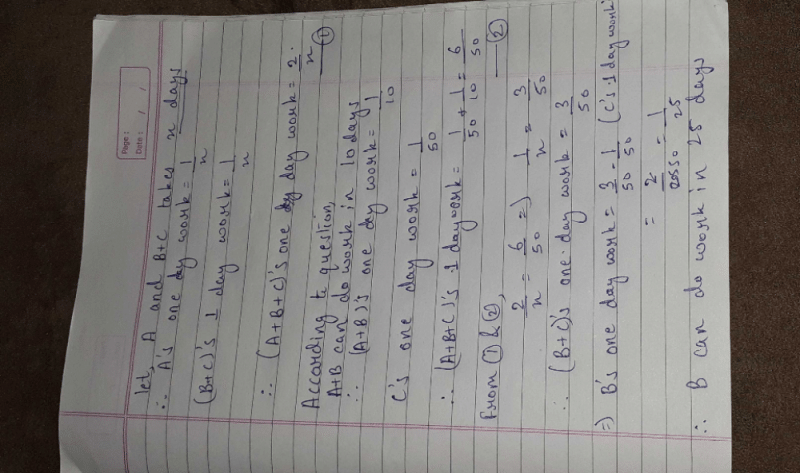 Page :
Date : / /
let, A and B+C takes x days
∴ A's one day work = 1/x
(B+C)'s 1 day work = 1/x
∴ (A+B+C)'s one day work = 2/x. —①
According to question,
A+B can do work in 10 days
∴ (A+B)'s one day work = 1/10
C's one day work = 1/50
∴ (A+B+C)'s 1 day work = 1/50 + 1/10 = 6/50 —②
From ① & ②,
2/x = 6/50 =) 1/x = 3/50
∴ (B+C)'s one day work = 3/50
=) B's one day work = 3/50 - 1/50 (C's 1 day work)
= 2/50 = 1/25
∴ B can do work in 25 days